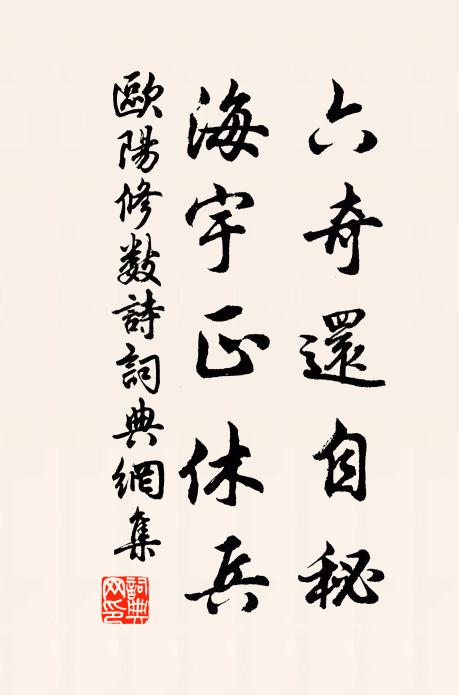 六奇還自秘
海宇正休兵
歐陽修数詩詞典網集
詞典網印